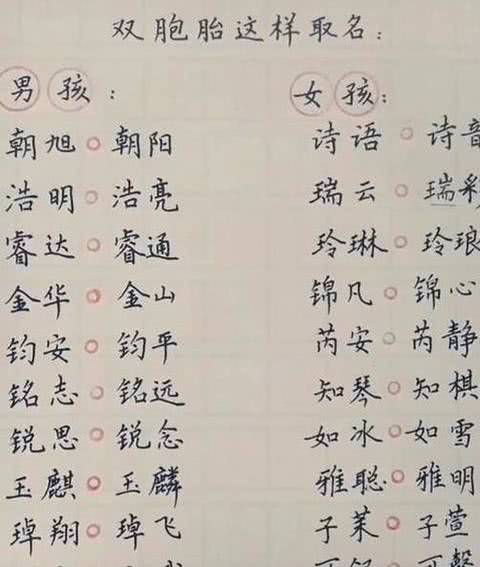 双胞胎这样取名：
男孩：
女孩：
朝旭○朝阳
诗语○诗音
浩明○浩亮
瑞云○瑞彩
睿达○睿通
玲琳○玲琅
金华○金山
锦凡○锦心
钧安○钧平
芮安○芮静
铭志○铭远
知琴○知棋
锐思○锐念
如冰○如雪
玉麒○玉麟
雅聪○雅明
琸翔○琸飞
子茉○子萱